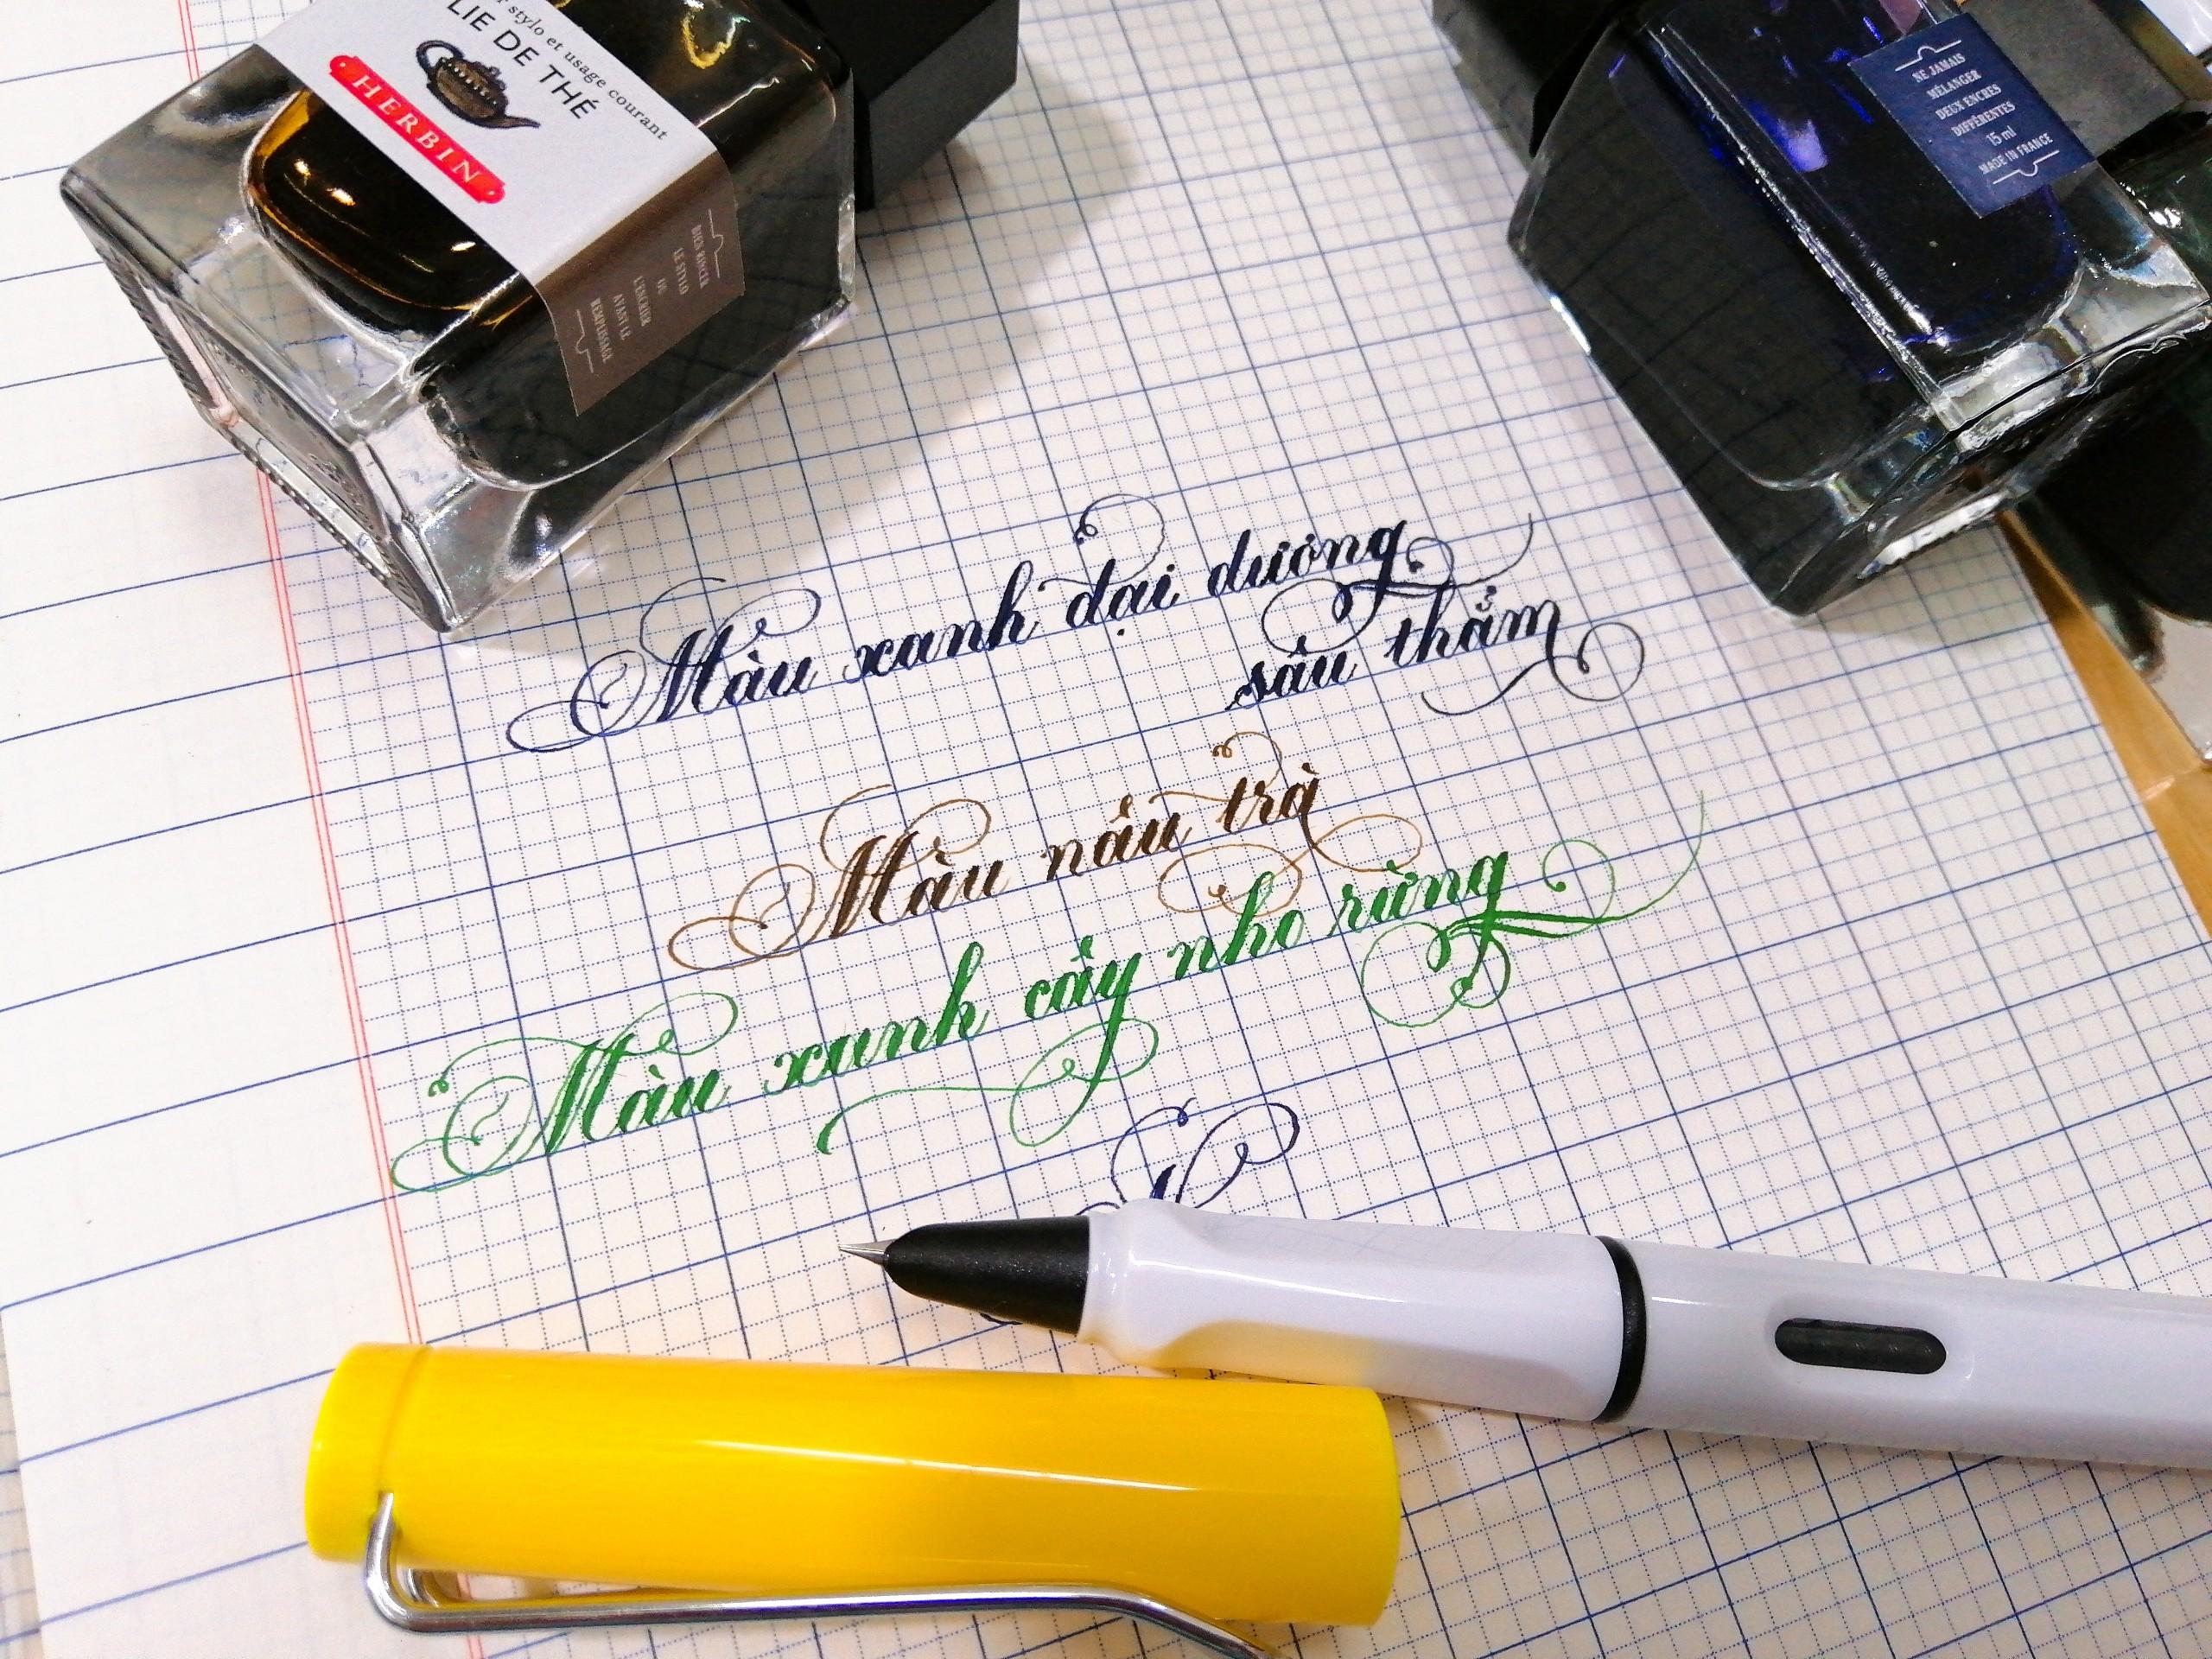 r stylo et usage courant
LIE DE THÉ
HERBIN
BIEN RINCER
LE STYLO
OU
L'ENCRIER
AVANT LE
REMPLISSAGE
NE JAMAIS
MÉLANGER
DEUX ENCRES
DIFFÉRENTES
15 ml
MADE IN FRANCE
Màu xanh đại dương
sâu thẳm
Màu nâu trà
Màu xanh cây nho rừng